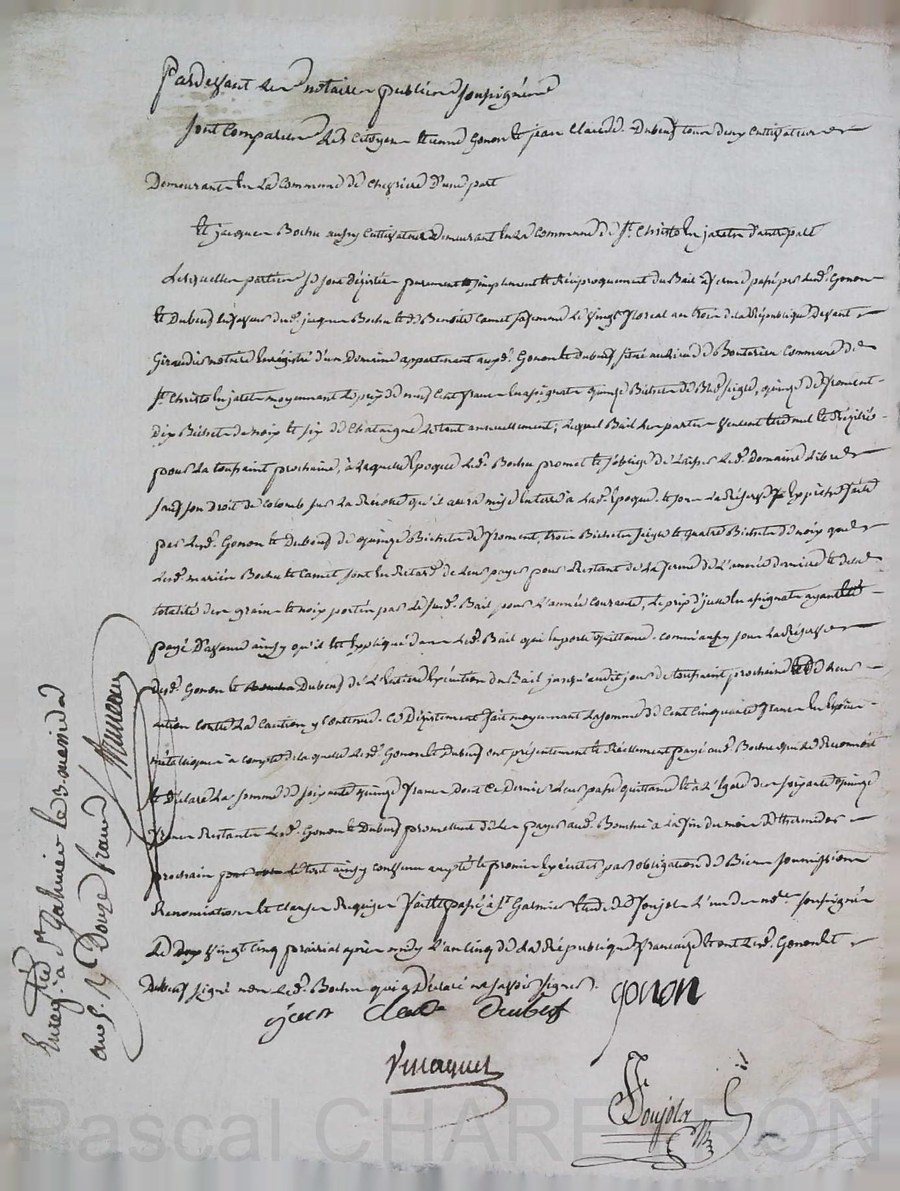 Pardevant les notaires publics soussignés
sont comparus les Citoyens Etienne Gonon et jean Claude Dubeuf tous deux Cultivateurs
Demeurants En La Commune de Chevrière D'une part
Et jacques Bochu aussy Cultivateur Demeurant en La Commune de St. Christo En jarets d'autre part
Lesquelles parties se sont Désistées purement et simplement et Réciproquement du Bail à ferme passé par Lesd. Gonon
Et Dubeuf En faveur dud. jacques Bochu et de Benoite Camet sa femme Le vingt floreal an trois de la République Devant
Giraud notaire Enregistré d'un Domaine appartenant auxd. Gonon et dubeuf situé au lieu de Commune de
St. Christo En jarets moyennant Le prix de neuf Cent francs En assignats quinze Bichets de Bled seigle, quinze de froment
Dix Bichets de noix Et six de Chataignes Le tout annuellement; Lequel Bail Les parties veulent Et Résilié
pour La toussaint prochaine, à Laquelle Epoque Led. Bochu promet Et s'oblige de Laisser Led. Domaine Libre
sauf son Droit de Colomb sur La Récolte qu'il aura mise En terre à Lad. Epoque. Et sous La Réserve Expresse faite
par Lesd. Gonon Et Dubeuf de quinze Bichets de froment, trois Bichets seigle Et quatre Bichets de noix que
Lesd. mariés Bochu Et Camet sont En Retard de Leur payer pour Restant de La ferme de L'année derniere Et de La
totalité des grains Et noix portés par Le susd. Bail pour L'année Courante, Le prix d'icelle En assignats ayant Eté
payé D'avance ainsy qu'il Est Expliqué dans Led. Bail qui Emporte quittance. Comme aussy sous La Réserve
desd. Gonon Et Dubeuf de L'Entiere Exécution du Bail jusqu'audit jour de toussaint prochaine Et de Leur
action Contre La Caution y Contenue. Ce Désistement fait moyennant La somme de Cent Cinquante francs En Espèces
métalliques à Compte de Laquelle Lesd. Gonon Et Dubeuf ont présentement Et Réellement payé aud. Bochu qui Le Reconnoit
Et Déclare La somme de soixante quinze francs Dont Ce Dernier Leur passe quittance Et à L'égard des soixante quinze
francs Restants Lesd. Gonon Et Dubeuf promettent de Les payer aud. Bochu à La fin du mois de thermidor
prochain Le tout ainsy Convenu accepté Et promis Exécuter par obligation de Biens soumissions
Renonciations Et Clauses Requises fait Et passé à St. Galmier Etude de Joujols L'un des nres. soussignés
Le vingt Cinq prairial après midy L'an Cinq de La République française Et ont Lesd. Gonon Et
Dubeuf signé non Led. Bochu qui a Déclaré ne savoir signer.
jean Claude Dubeuf gonon
Joujols
Enreg. à St. Galmier le 3 messidor
an 5. Rd. Douze francs
Pascal CHAREYRON